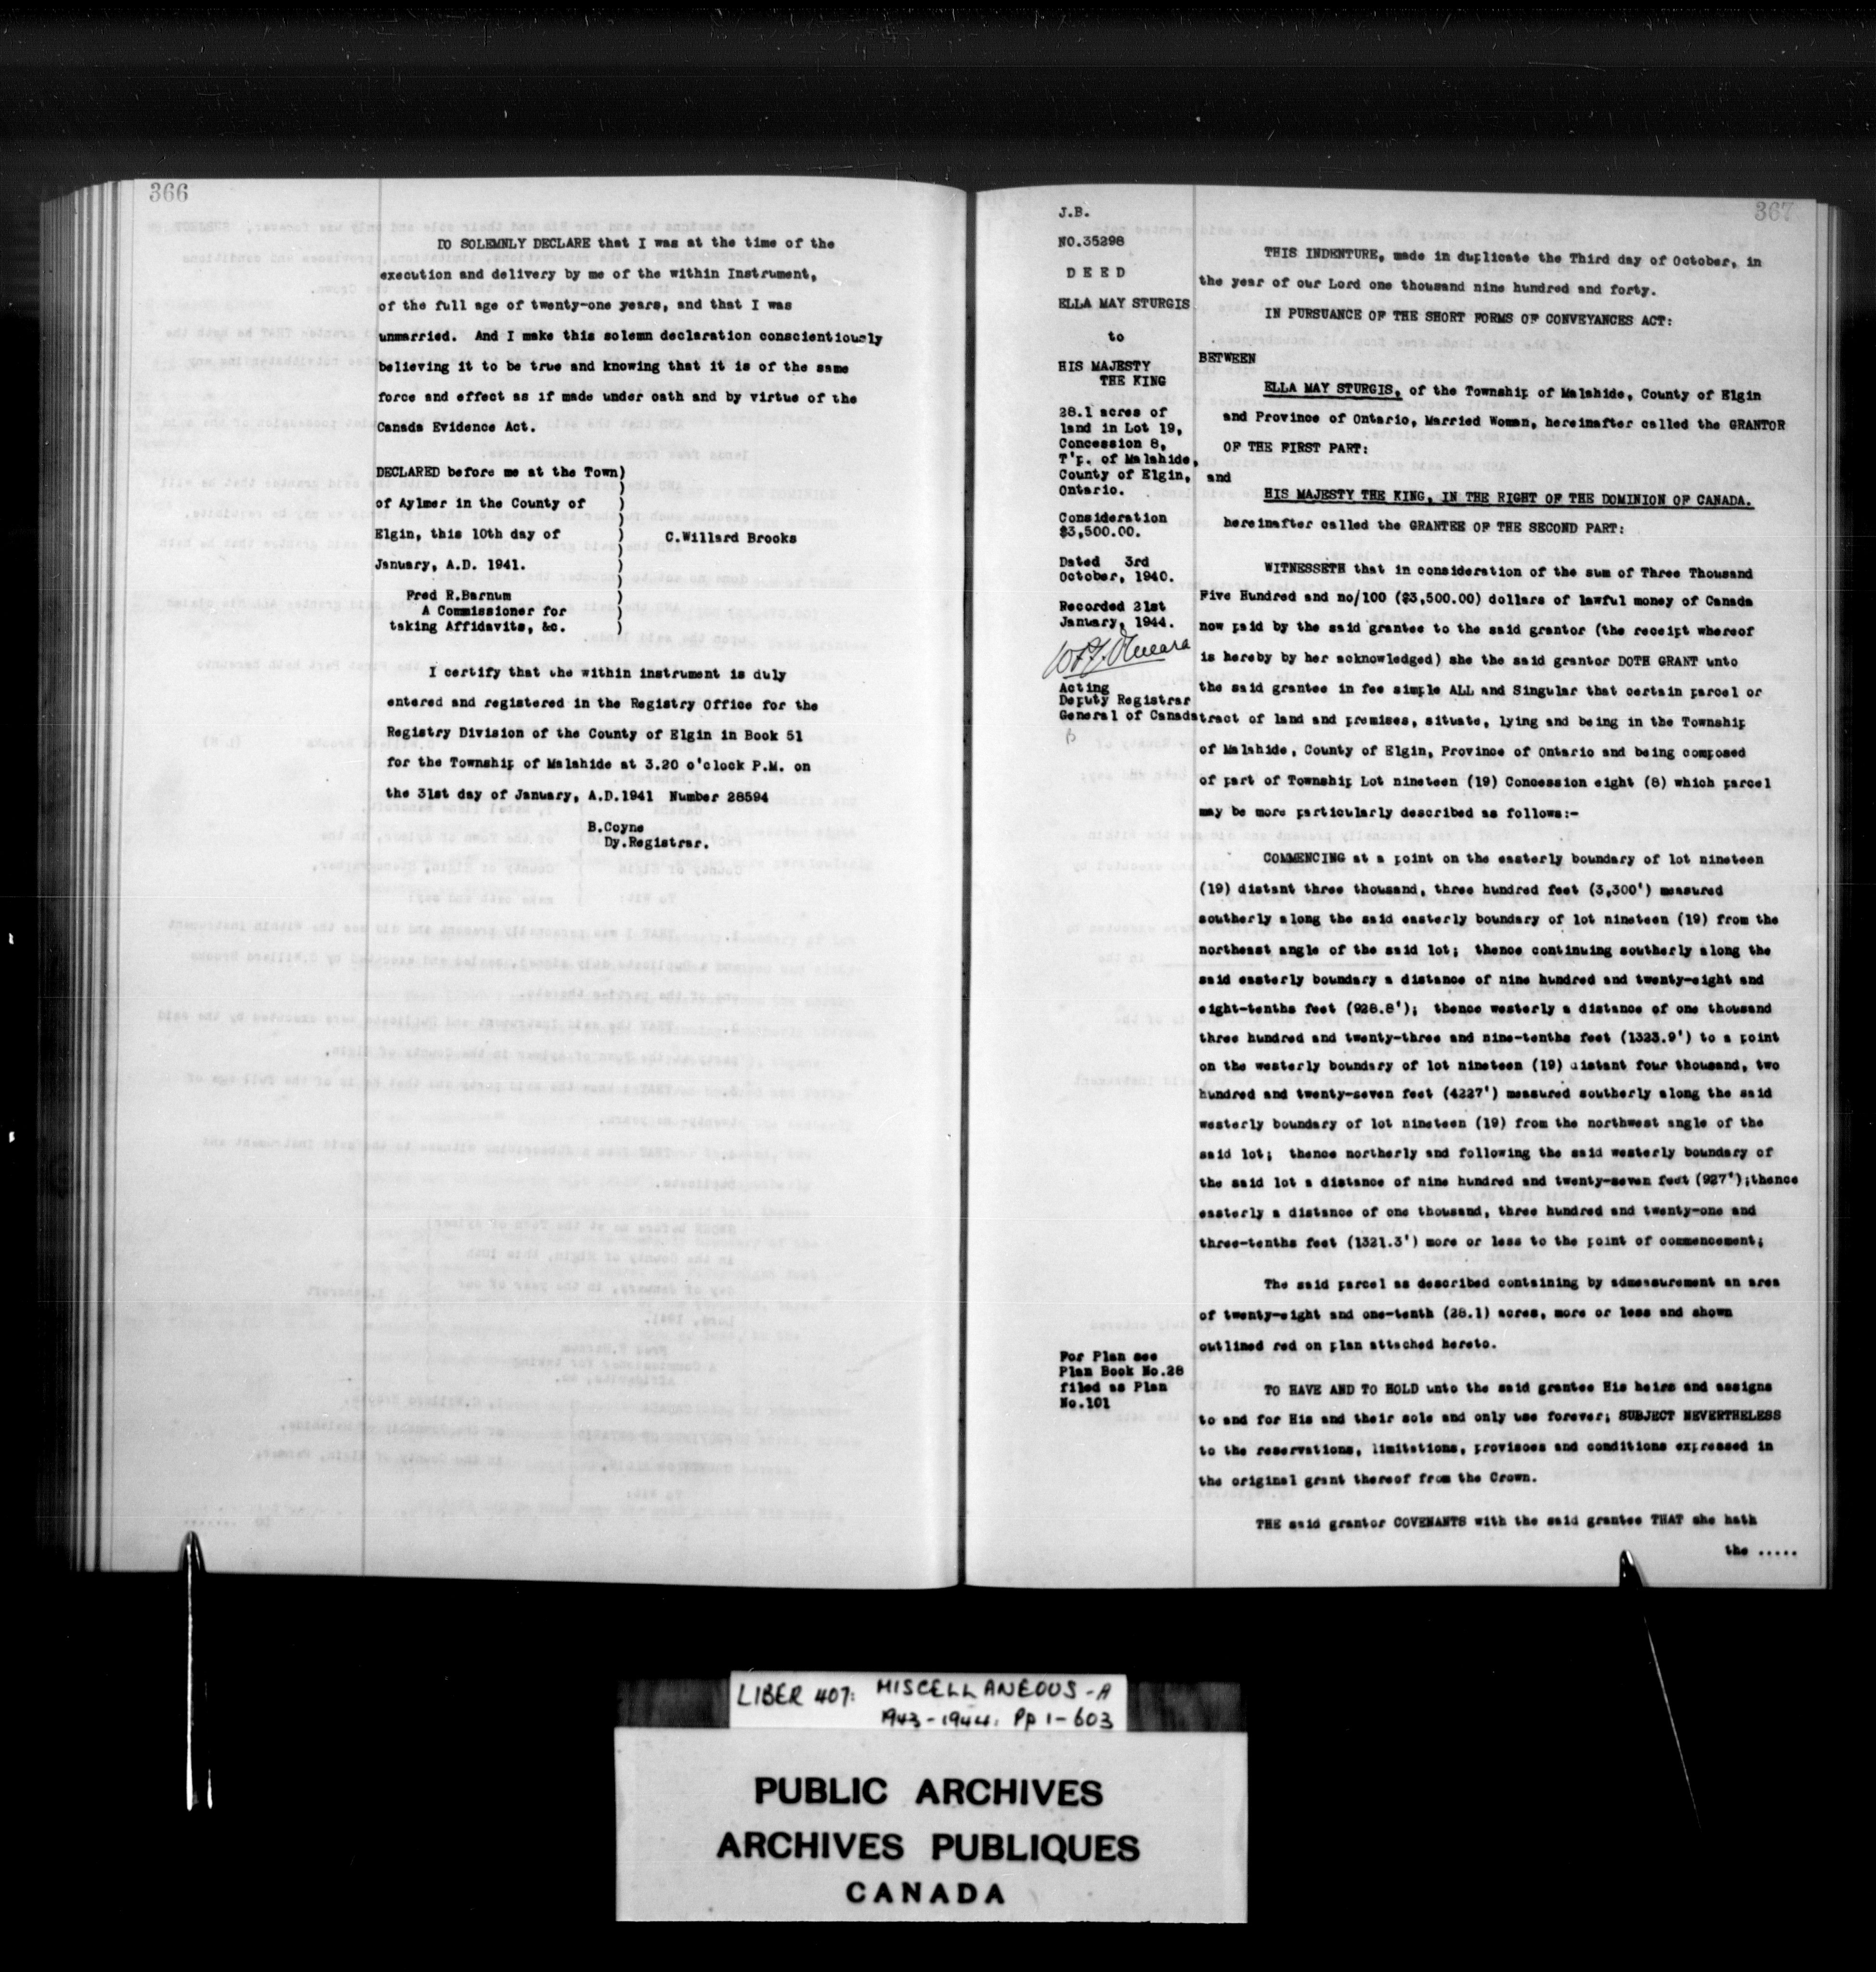 366
DO SOLEMNLY DECLARE that I was at the time of the
execution and delivery by me of the within Instrument,
of the full age of twenty-one years, and that I was
unmarried. And I make this solemn declaration conscientiously
believing it to be true and knowing that it is of the same
force and effect as if made under oath and by virtue of the
Canada Evidence Act.
DECLARED before me at the Town)
of Aylmer in the County of )
Elgin, this 10th day of ) C.Willard Brooks
January, A.D. 1941. )
Fred R.Barnum )
A Commissioner for )
taking Affidavits, &c. )
I certify that the within instrument is duly
entered and registered in the Registry Office for the
Registry Division of the County of Elgin in Book 51
for the Township of Malahide at 3.20 o'clock P.M. on
the 31st day of January, A.D.1941 Number 28594
B.Coyne
Dy.Registrar.
367
J.B.
NO.35298
D E E D
ELLA MAY STURGIS
to
HIS MAJESTY
THE KING
28.1 acres of
land in Lot 19,
Concession 8,
T'p. of Malahide,
County of Elgin,
Ontario.
Consideration
$3,500.00.
Dated 3rd
October, 1940.
Recorded 21st
January, 1944.
Acting
Deputy Registrar
General of Canada
For Plan see
Plan Book No.28
filed as Plan
No.101
THIS INDENTURE, made in duplicate the Third day of October, in
the year of our Lord one thousand nine hundred and forty.
IN PURSUANCE OF THE SHORT FORMS OF CONVEYANCES ACT:
BETWEEN
ELLA MAY STURGIS, of the Township of Malahide, County of Elgin
and Province of Ontario, Married Woman, hereinafter called the GRANTOR
OF THE FIRST PART:
and
HIS MAJESTY THE KING, IN THE RIGHT OF THE DOMINION OF CANADA.
hereinafter called the GRANTEE OF THE SECOND PART:
WITNESSETH that in consideration of the sum of Three Thousand
Five Hundred and no/100 ($3,500.00) dollars of lawful money of Canada
now paid by the said grantee to the said grantor (the receipt whereof
is hereby by her acknowledged) she the said grantor DOTH GRANT unto
the said grantee in fee simple ALL and Singular that certain parcel or
tract of land and premises, situate, lying and being in the Township
of Malahide, County of Elgin, Province of Ontario and being composed
of part of Township Lot nineteen (19) Concession eight (8) which parcel
may be more particularly described as follows:-
COMMENCING at a point on the easterly boundary of lot nineteen
(19) distant three thousand, three hundred feet (3,300') measured
southerly along the said easterly boundary of lot nineteen (19) from the
northeast angle of the said lot; thence continuing southerly along the
said easterly boundary a distance of nine hundred and twenty-eight and
eight-tenths feet (928.8'); thence westerly a distance of one thousand
three hundred and twenty-three and nine-tenths feet (1323.9') to a point
on the westerly boundary of lot nineteen (19) distant four thousand, two
hundred and twenty-seven feet (4227') measured southerly along the said
westerly boundary of lot nineteen (19) from the northwest angle of the
said lot; thence northerly and following the said westerly boundary of
the said lot a distance of nine hundred and twenty-seven feet (927');thence
easterly a distance of one thousand, three hundred and twenty-one and
three-tenths feet (1321.3') more or less to the point of commencement;
The said parcel as described containing by admeasurement an area
of twenty-eight and one-tenth (28.1) acres, more or less and shown
outlined red on plan attached hereto.
TO HAVE AND TO HOLD unto the said grantee His heirs and assigns
to and for His and their sole and only use forever; SUBJECT NEVERTHELESS
to the reservations, limitations, provisoes and conditions expressed in
the original grant thereof from the Crown.
THE said grantor COVENANTS with the said grantee THAT she hath
the .....
LIBER 407: MISCELLANEOUS-A
1943-1944. Pp 1-603
PUBLIC ARCHIVES
ARCHIVES PUBLIQUES
CANADA